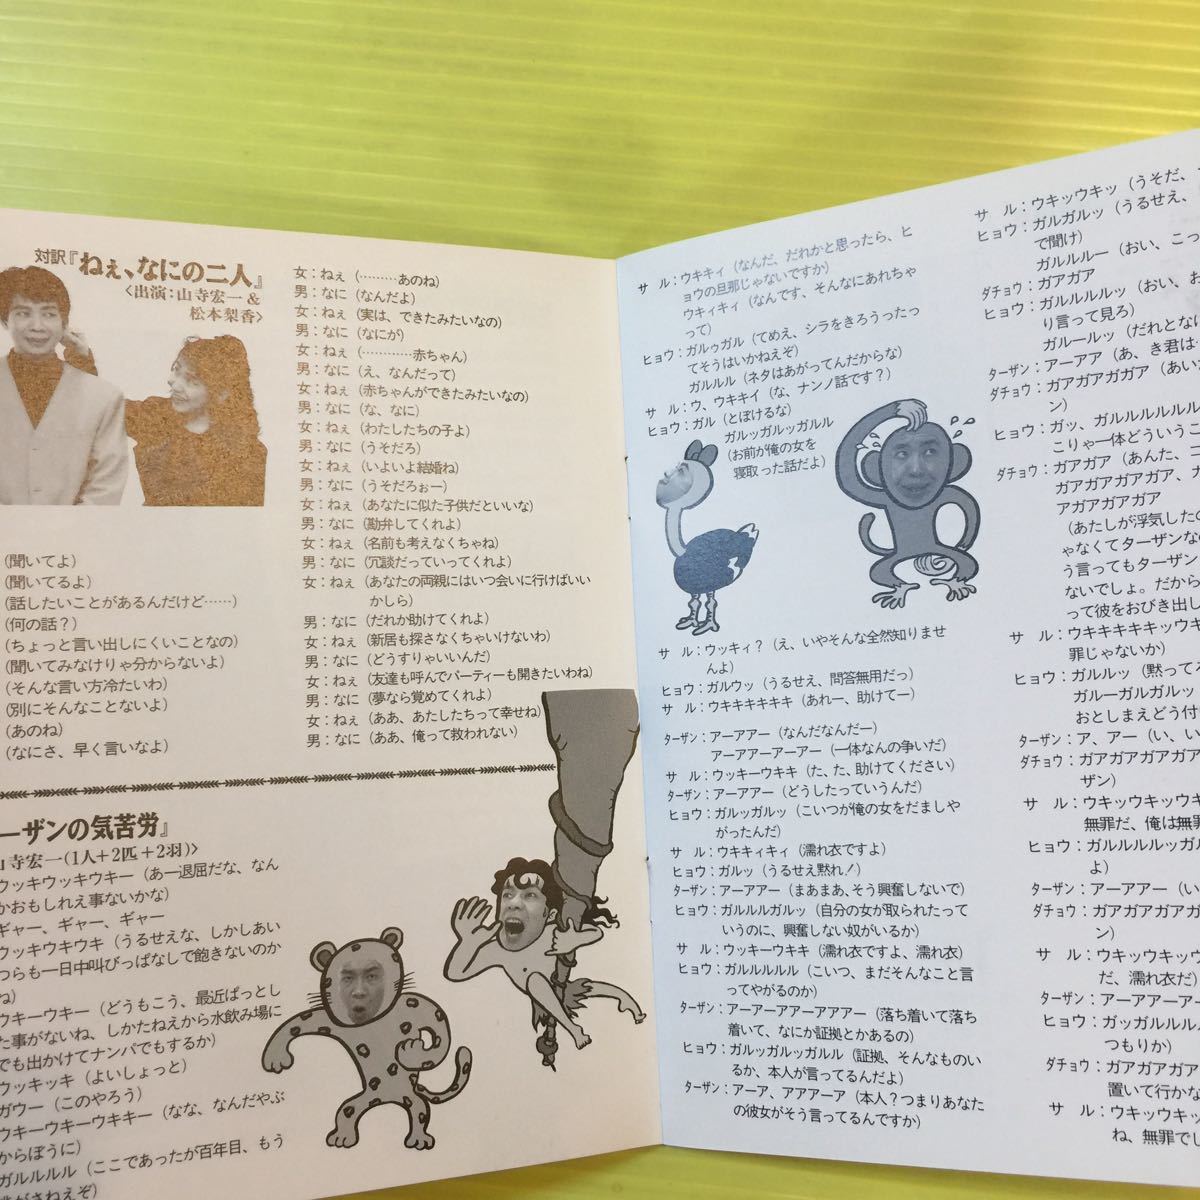 対訳『ねぇ、なにの二人』
〈出演：山寺宏一＆
松本梨香〉
(聞いてよ)
(聞いてるよ)
(話したいことがあるんだけど……)
(何の話？)
(ちょっと言い出しにくいことなの)
(聞いてみなけりゃ分からないよ)
(そんな言い方冷たいわ)
(別にそんなことないよ)
(あのね)
(なにさ、早く言いなよ)
女：ねぇ (………あのね)
男：なに (なんだよ)
女：ねぇ (実は、できたみたいなの)
男：なに (なにが)
女：ねぇ (…………赤ちゃん)
男：なに (え、なんだって)
女：ねぇ (赤ちゃんができたみたいなの)
男：なに (な、なに)
女：ねぇ (わたしたちの子よ)
男：なに (うそだろ)
女：ねぇ (いよいよ結婚ね)
男：なに (うそだろぉー)
女：ねぇ (あなたに似た子供だといいな)
男：なに (勘弁してくれよ)
女：ねぇ (名前も考えなくちゃね)
男：なに (冗談だっていってくれよ)
女：ねぇ (あなたの両親にはいつ会いに行けばいい
かしら)
男：なに (だれか助けてくれよ)
女：ねぇ (新居も探さなくちゃいけないわ)
男：なに (どうすりゃいいんだ)
女：ねぇ (友達も呼んでパーティーも開きたいわね)
男：なに (夢なら覚めてくれよ)
女：ねぇ (ああ、あたしたちって幸せね)
男：なに (ああ、俺って救われない)
ーザンの気苦労』
山寺宏一(1人＋2匹＋2羽)〉
ウッキウッキウキー (あー退屈だな、なん
かおもしれえ事ないかな)
ギャー、ギャー、ギャー
ウッキウキウキ (うるせえな、しかしあい
つらも一日中叫びっぱなしで飽きないのか
ね)
ウキーウキー (どうもこう、最近ぱっとし
た事がないね、しかたねえから水飲み場に
でも出かけてナンパでもするか)
ウッキッキ (よいしょっと)
ガウー (このやろう)
ウキーウキーウキキー (なな、なんだやぶ
からぼうに)
ガルルルル (ここであったが百年目、もう
サ　ル：ウキキィ (なんだ、だれかと思ったら、ヒ
ョウの旦那じゃないですか)
ウキィキィ (なんです、そんなにあれちゃ
って)
ヒョウ：ガルゥガル (てめえ、シラをきろうったっ
てそうはいかねえぞ)
ガルルル (ネタはあがってんだからな)
サ　ル：ウ、ウキキイ (な、ナンノ話です？)
ヒョウ：ガル (とぼけるな)
ガルッガルッガルル
(お前が俺の女を
寝取った話だよ)
サ　ル：ウッキィ？ (え、いやそんな全然知りませ
んよ)
ヒョウ：ガルウッ (うるせえ、問答無用だっ)
サ　ル：ウキキキキキキ (あれー、助けてー)
ターザン：アーアアー (なんだなんだー)
アーアアーアーアー (一体なんの争いだ)
サ　ル：ウッキーウキキ (た、た、助けてください)
ターザン：アーアアー (どうしたっていうんだ)
ヒョウ：ガルッガルッ (こいつが俺の女をだましや
がったんだ)
サ　ル：ウキキィキィ (濡れ衣ですよ)
ヒョウ：ガルッ (うるせえ黙れ！)
ターザン：アーアアー (まあまあ、そう興奮しないで)
ヒョウ：ガルルルガルッ (自分の女が取られたって
いうのに、興奮しない奴がいるか)
サ　ル：ウッキーウキキ (濡れ衣ですよ、濡れ衣)
ヒョウ：ガルルルルル (こいつ、まだそんなこと言
ってやがるのか)
ターザン：アーアーアアーアアアー (落ち着いて落ち
着いて、なにか証拠とかあるの)
ヒョウ：ガルッガルッガルル (証拠、そんなものい
るか、本人が言ってるんだよ)
ターザン：アーア、アアアーア (本人？つまりあなた
の彼女がそう言ってるんですか)
サ　ル：ウキッウキッ (うそだ、
ヒョウ：ガルガルッ (うるせえ、
で聞け)
ガルルルー (おい、こっ
ダチョウ：ガアガア
ヒョウ：ガルルルルッ (おい、お
り言って見ろ)
ガルールッ (だれとな
ターザン：アーアア (あ、き君は‥
ダチョウ：ガアガアガガア (あい
ン)
ヒョウ：ガッ、ガルルルルルル
こりゃ一体どういうこ
ダチョウ：ガアガア (あんた、コ
ガアガアガアガア、ガ
アガアガアガア
(あたしが浮気したの
ゃなくてターザンな
う言ってもターザン
ないでしょ。だから
って彼をおびき出し
サ　ル：ウキキキキキッウキ
罪じゃないか)
ヒョウ：ガルルッ (黙って
ガルーガルガルッ
おとしまえどう付
ターザン：ア、アー (い、い
ダチョウ：ガアガアガアガア
ザン)
サ　ル：ウキッウキッウキ
無罪だ、俺は無罪
ヒョウ：ガルルルルッガル
よ)
ターザン：アーアアー (い
ダチョウ：ガアガアガアガ
ン)
サ　ル：ウキッウキッウ
だ、濡れ衣だ)
ターザン：アーアアーアー
ヒョウ：ガッガルルル
つもりか)
ダチョウ：ガアガアガア
置いて行かな
サ　ル：ウキッウキッ
ね、無罪でし